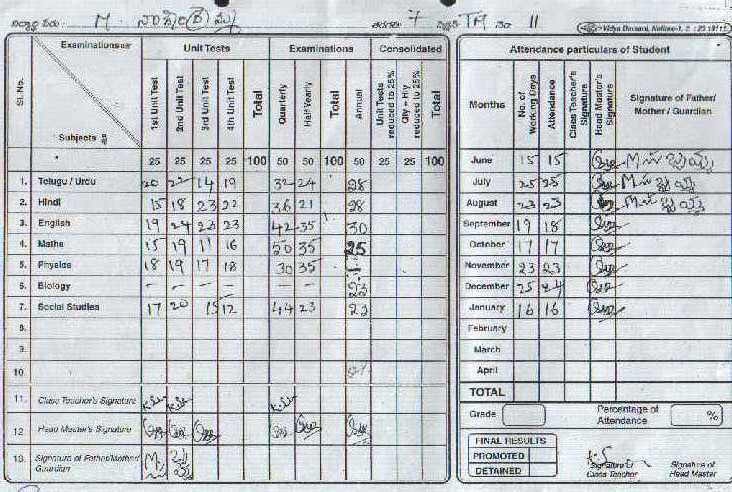 విద్యార్థి పేరు M. తరగతి 7 సెక్షన్ TM నెం 11 Vidya Devarai, Nellore-1
Examinations Unit Tests Examinations Consolidated
Sl. No. Subjects 1st Unit Test 2nd Unit Test 3rd Unit Test 4th Unit Test Total Quarterly Half Yearly Total Annual Unit Tests reduced to 25% Qly + Hly reduced to 25% Total
25 25 25 25 100 50 50 100 50 25 25 100
1. Telugu / Urdu 20 22 14 19 32 24 28
2. Hindi 15 18 23 22 36 21 28
3. English 19 24 23 23 42 35 30
4. Maths 15 19 11 16 50 35 25
5. Physics 18 19 17 18 30 35
6. Biology - - - - - - 23
7. Social Studies 17 20 15 12 44 23 23
8.
9.
10.
11. Class Teacher's Signature
12. Head Master's Signature
13. Signature of Father/Mother/
Guardian
Attendance particulars of Student
Months No. of Working Days Attendance Class Teacher's Signature Head Master's Signature Signature of Father/
Mother / Guardian
June 15 15
July 25 25
August 23 23
September 19 18
October 17 17
November 23 23
December 25 24
January 16 16
February
March
April
TOTAL
Grade Percentage of
Attendance %
FINAL RESULTS
PROMOTED
DETAINED
Signature of
Class Teacher
Signature of
Head Master